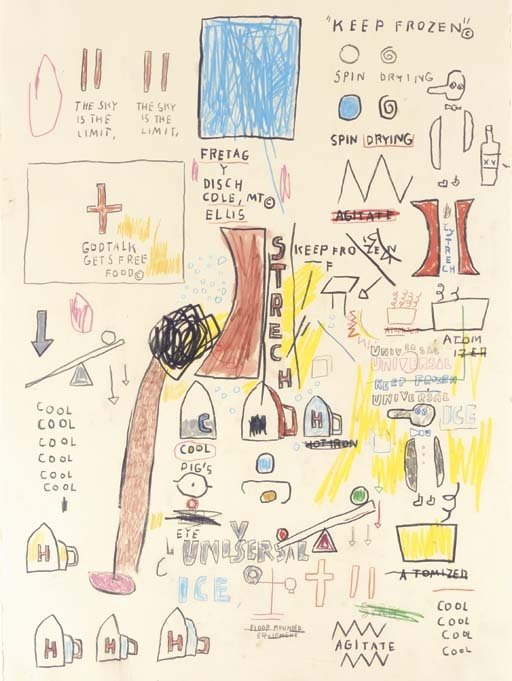 "KEEP FROZEN"©
SPIN DRYING
THE SKY
IS THE
LIMIT,
THE SKY
IS THE
LIMIT,
SPIN DRYING
FRETAG
Y
DISCH
COLE, MT©
ELLIS
XV
AGITATE
GODTALK
GETS FREE
FOOD©
STRECH
STRECH
KEEP FROZEN
F
ATOM
IZER
UNIVERSAL
KEEP FROZEN
UNIVERSAL
ICE
COOL
COOL
COOL
COOL
COOL
COOL
C
H
HOT IRON
COOL
PIG'S
EYE
H
Y
UNISERSAL
ICE
ATOMIZED
FLOOR MOUNTED
EQUIPMENT
COOL
COOL
COOL
COOL
AGITATE
H
H
H